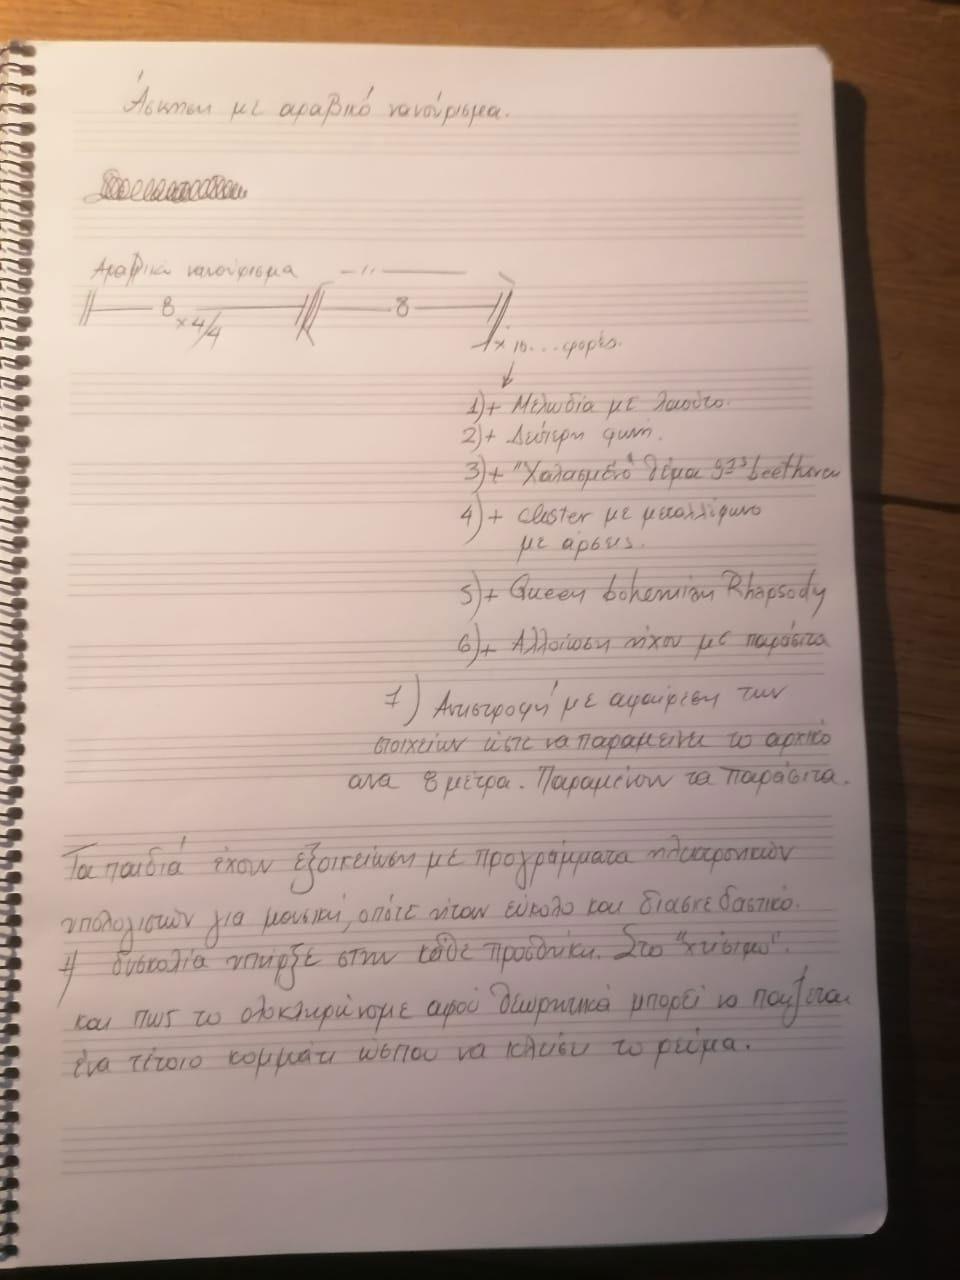 Άσκηση με αραβικό νανούρισμα.
Αραβικό νανούρισμα — 〃 —
8 x 4/4 8
x 10... φορές.
1) + Μελωδία με λαούτο.
2) + Δεύτερη φωνή.
3) + "Χαλασμένο" θέμα 9ης beethoven
4) + cluster με μεταλλόφωνο
με άρσεις.
5) + Queen bohemian Rhapsody
6) + Αλλοίωση ήχου με παράσιτα
7) Αντιστροφή με αφαίρεση των
στοιχείων ώστε να παραμείνει το αρχικό
ανα 8 μέτρα. Παραμένουν τα παράσιτα.
Τα παιδιά έχουν εξοικείωση με προγράμματα ηλεκτρονικών
υπολογιστών για μουσική, οπότε ήταν εύκολο και διασκεδαστικό.
Η δυσκολία υπήρξε στην κάθε προσθήκη. Στο "χτίσιμο".
και πως το ολοκληρώνουμε αφού θεωρητικά μπορεί να παίζεται
ένα τέτοιο κομμάτι ώσπου να κλείσει το ρεύμα.